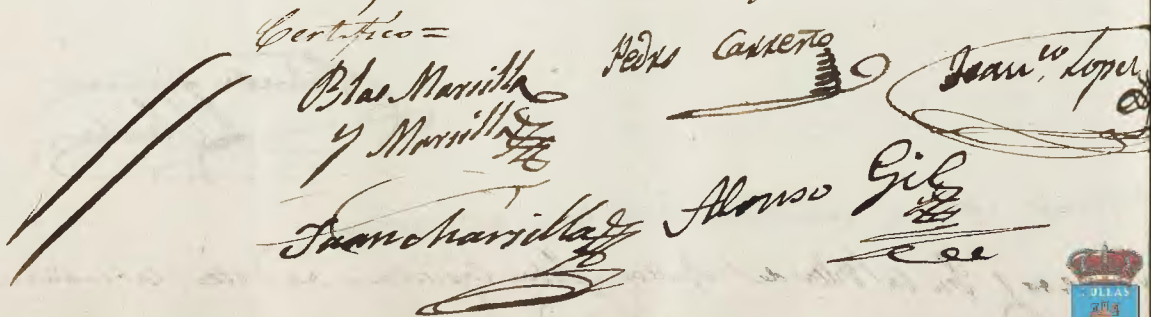 Certifico=
Blas Marsilla
y Marsilla
Pedro Carreño
Fran.co Lopez
Juan Marsilla
Alonso Gil
ULLAS